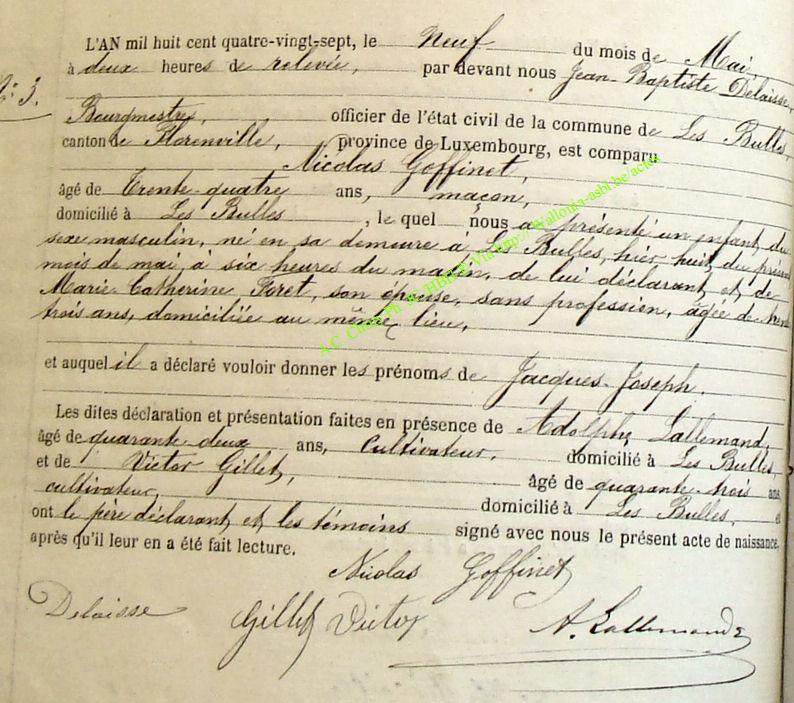 L'AN mil huit cent quatre-vingt-sept, le Neuf du mois de Mai,
à deux heures de relevée, par devant nous Jean-Baptiste Delaisse,
N° 3.
Bourgmestre, officier de l'état civil de la commune de Les Bulles,
canton de Florenville, province de Luxembourg, est comparu
Nicolas Goffinet,
âgé de Trente-quatre ans, maçon,
domicilié à Les Bulles, le quel nous a présenté un enfant du
sexe masculin, né en sa demeure à Les Bulles, hier huit du présent
mois de mai, à six heures du matin, de lui déclarant et de
Marie-Catherine Foret, son épouse, sans profession, âgée de trente
trois ans, domiciliée au même lieu,
et auquel il a déclaré vouloir donner les prénoms de Jacques-Joseph.
Les dites déclaration et présentation faites en présence de Adolphe Lallemand,
âgé de quarante deux ans, Cultivateur, domicilié à Les Bulles,
et de Victor Gillet, âgé de quarante-trois ans
cultivateur, domicilié à Les Bulles, et
ont le père déclarant et les témoins signé avec nous le présent acte de naissance,
après qu'il leur en a été fait lecture.
Nicolas Goffinet
Delaisse Gillet Victor A. Lallemand